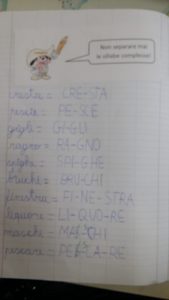 Non separare mai
le sillabe complesse!
creste = CRE-STA
pesce = PE-SCE
gigli = GI-GLI
ragno = RA-GNO
spighe = SPI-GHE
bruchi = BRU-CHI
finestra = FI-NE-STRA
liquore = LI-QUO-RE
maschi = MA CHI
pescare = PE CA-RE